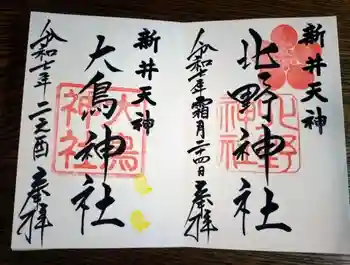 新井天神
北野神社
令和七年霜月二十四日
奉拝
北野神社
新井天神
大鳥神社
令和七年二之酉
奉拝
大鳥神社